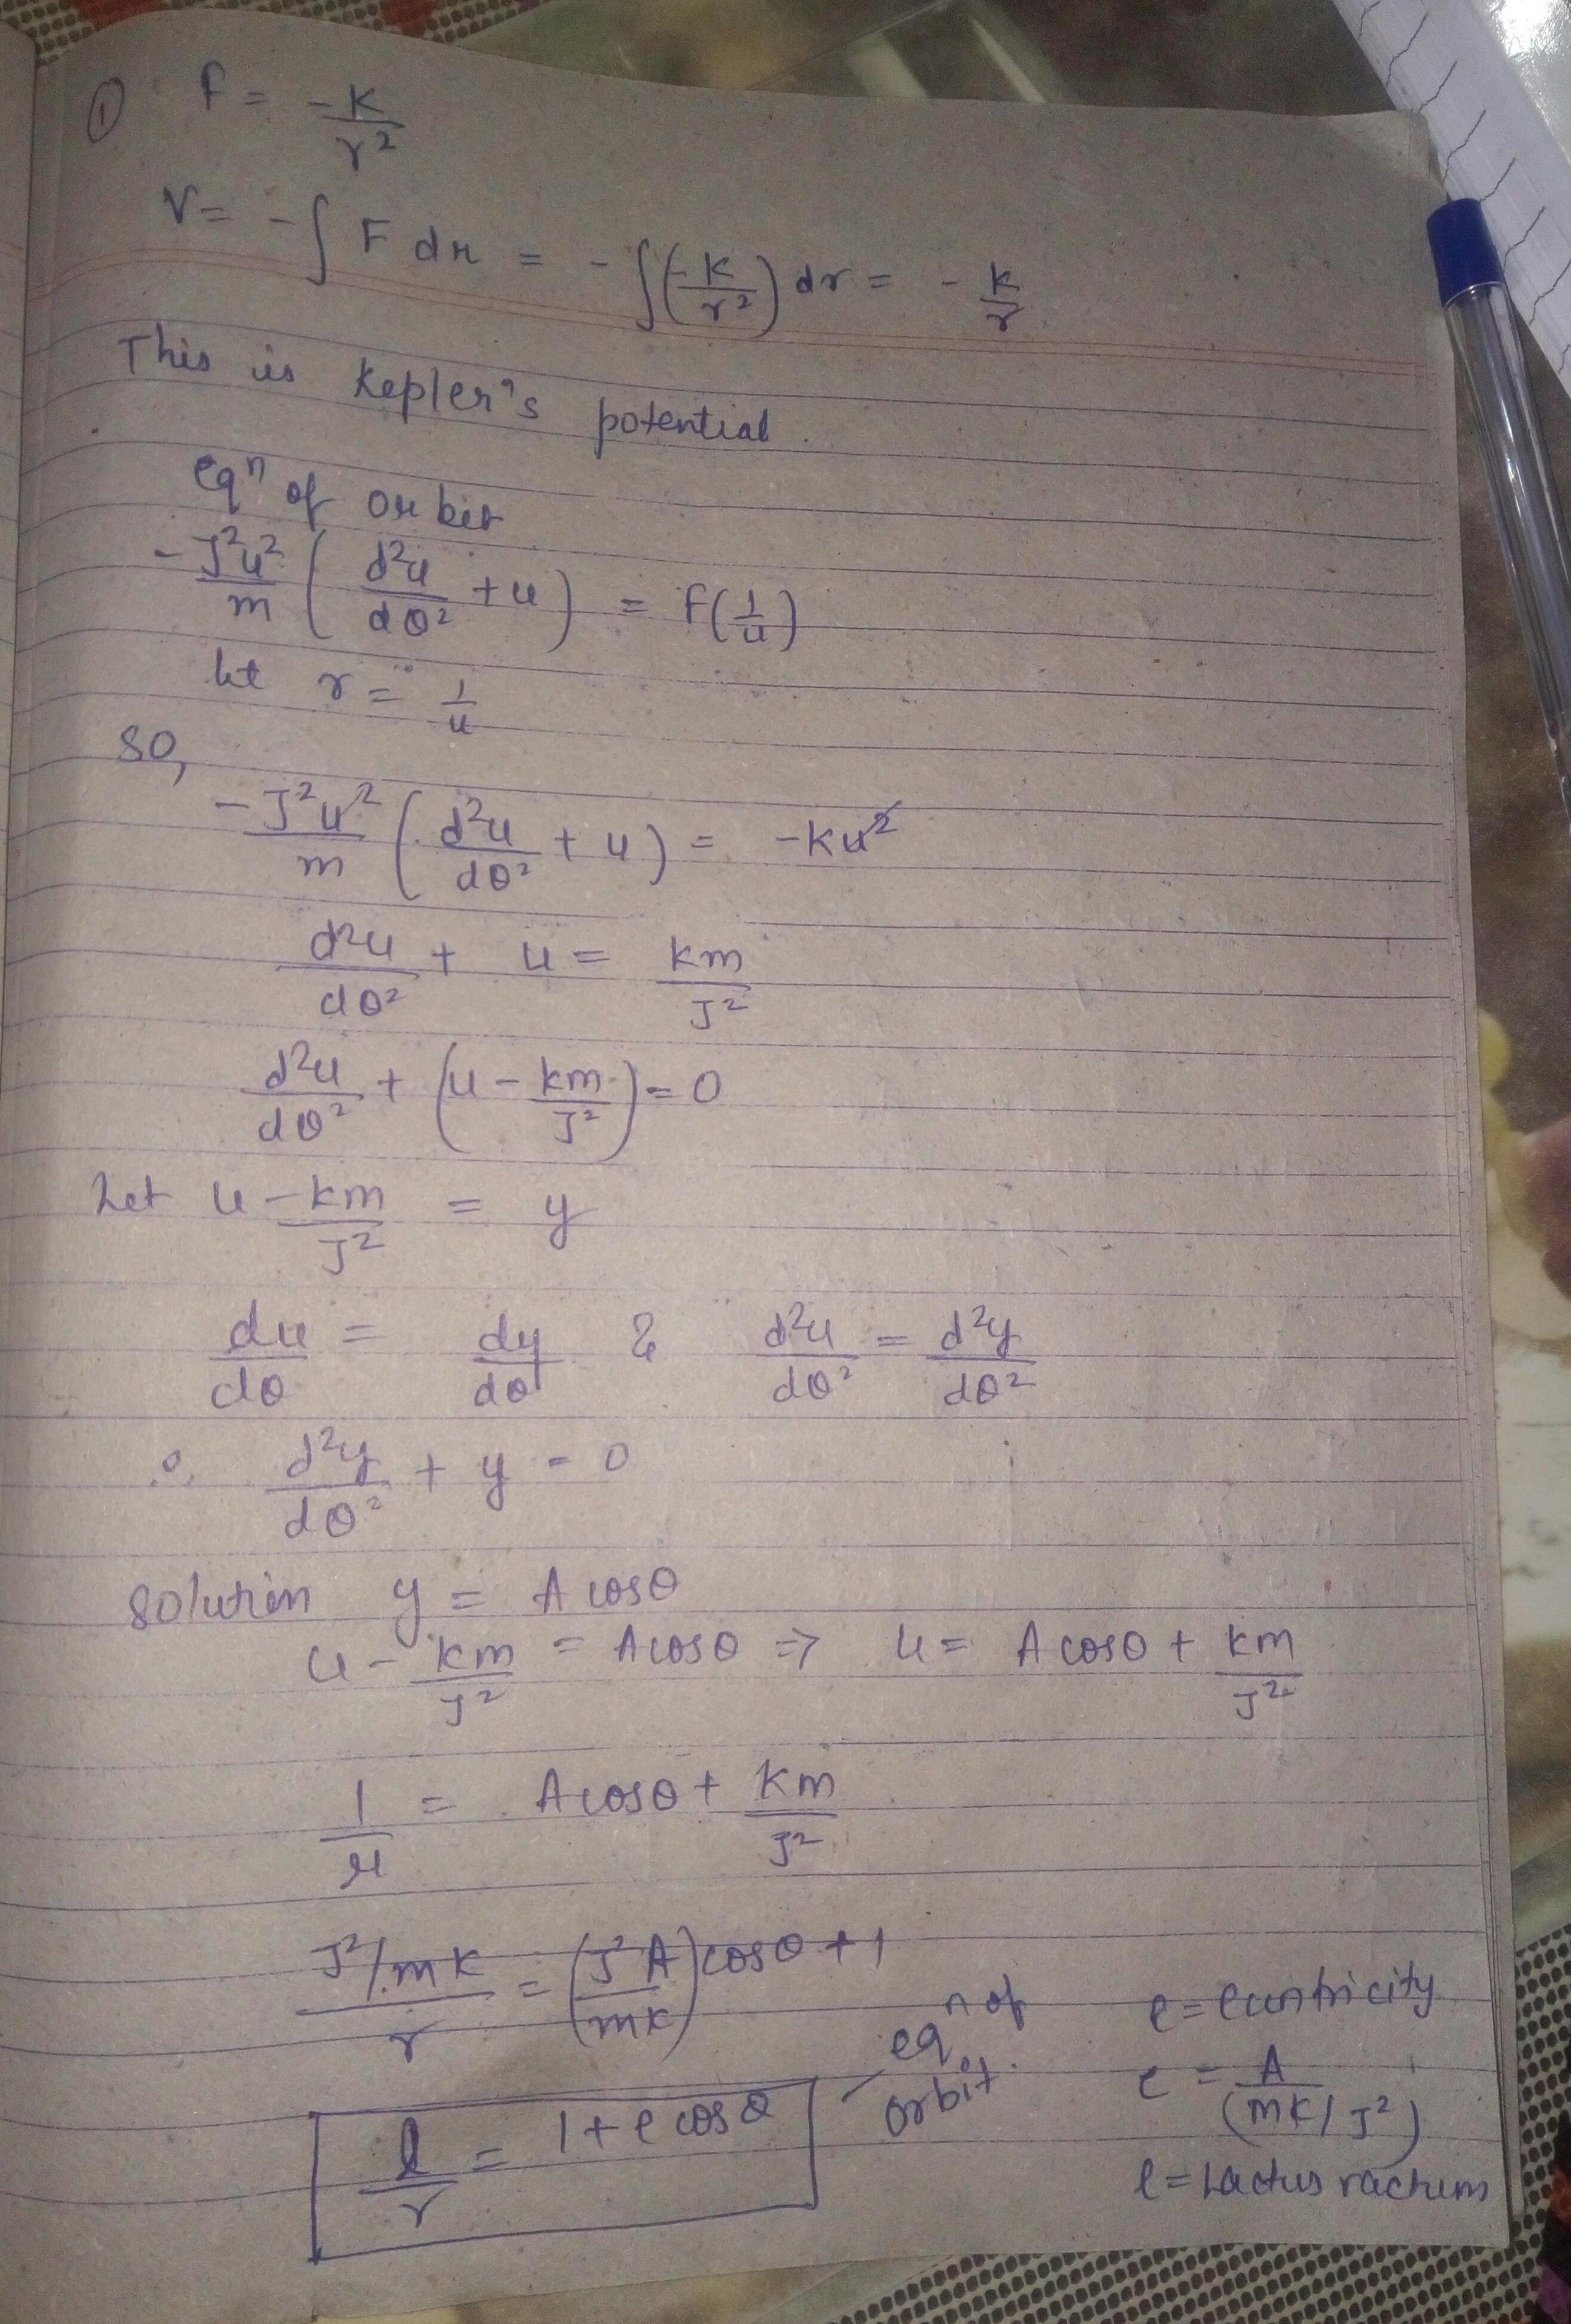 ① f = -K/r²
V = -∫ F dr = -∫(-K/r²) dr = -k/r
This is Kepler's potential.
eqⁿ of orbit
-J²u²/m (d²u/dθ² + u) = f(1/u)
let r = 1/u
so,
-J²u²/m (d²u/dθ² + u) = -ku²
d²u/dθ² + u = km/J²
d²u/dθ² + (u - km/J²) = 0
Let u - km/J² = y
du/dθ = dy/dθ & d²u/dθ² = d²y/dθ²
∴ d²y/dθ² + y = 0
solution y = A cosθ
u - km/J² = A cosθ ⇒ u = A cosθ + km/J²
1/r = A cosθ + km/J²
(J²/mk)/r = (J²A/mk) cosθ + 1
l/r = 1 + e cosθ – eqⁿ of orbit.
e = eccntricity
e = A/(mk/J²)
l = Lactus ractum